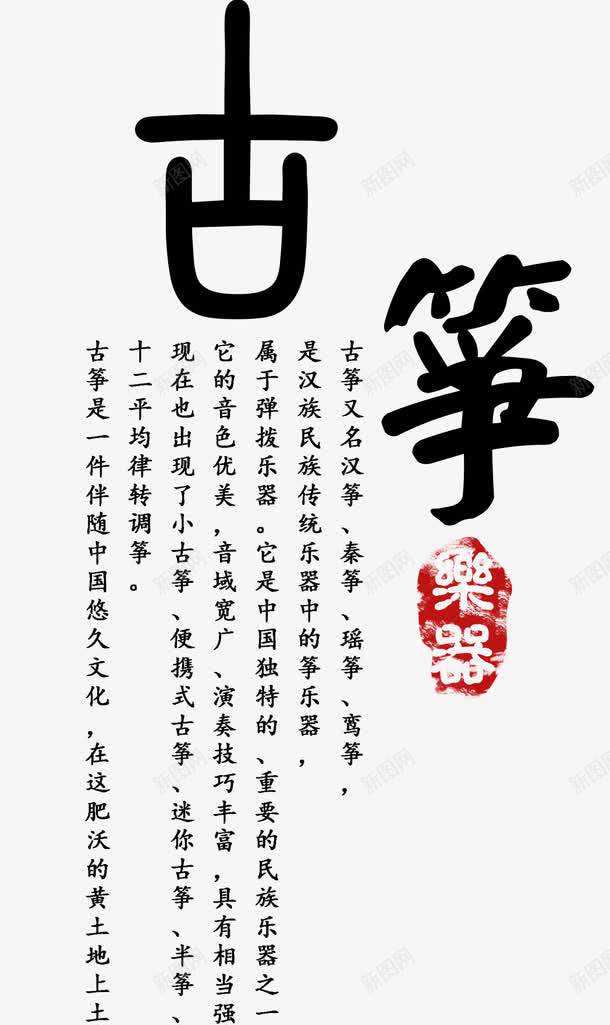 古筝
樂器
古筝又名汉筝、秦筝、瑶筝、鸾筝,
是汉族民族传统乐器中的筝乐器,
属于弹拨乐器。它是中国独特的、重要的民族乐器之一
它的音色优美,音域宽广、演奏技巧丰富,具有相当强
现在也出现了小古筝、便携式古筝、迷你古筝、半筝、
十二平均律转调筝。
古筝是一件伴随中国悠久文化,在这肥沃的黄土地上土
新图网